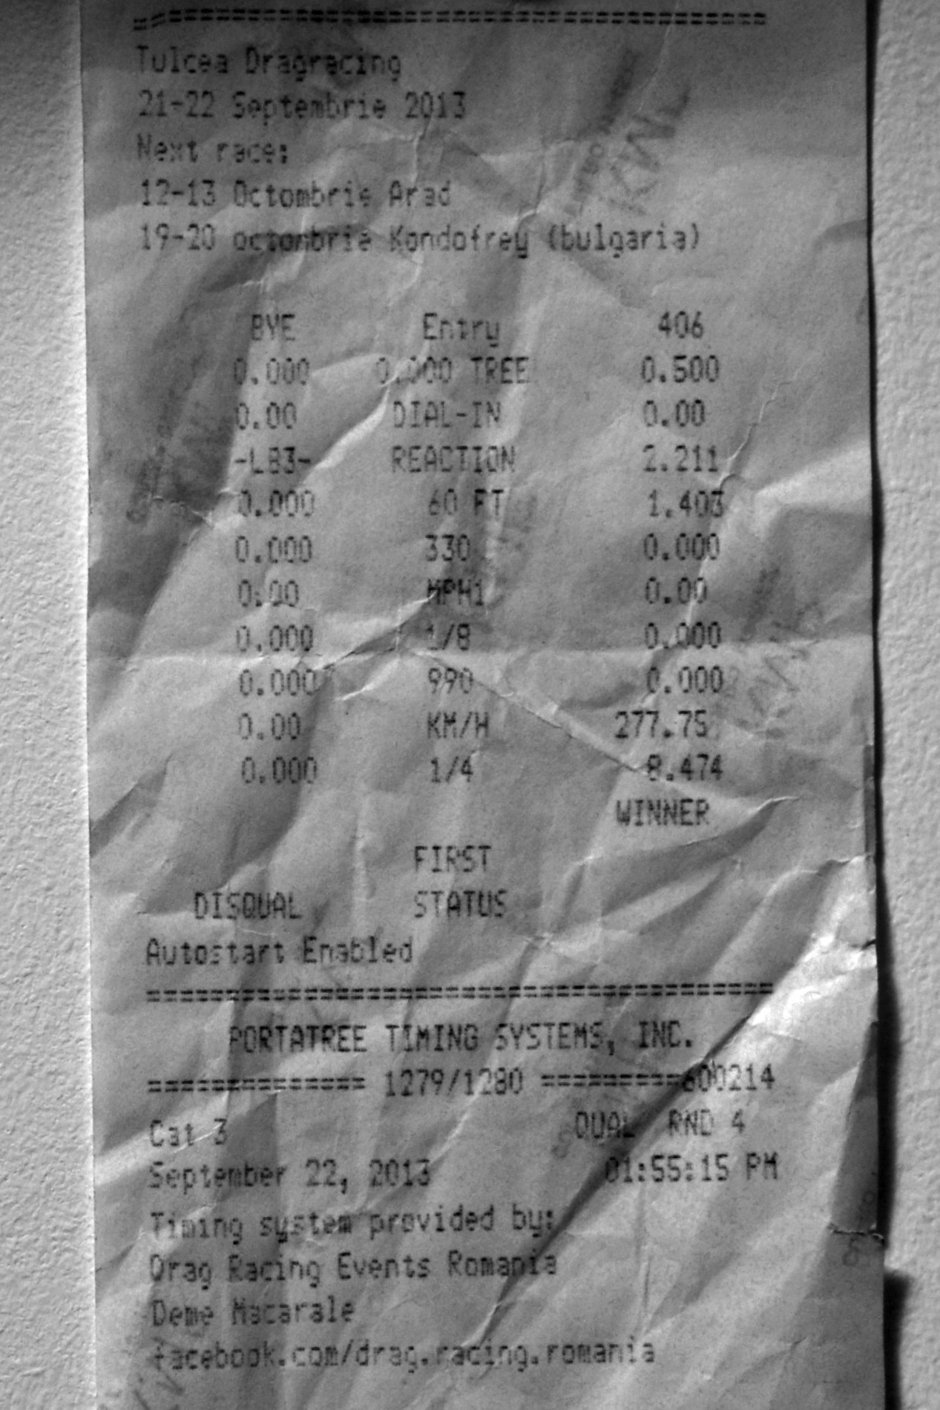 Tulcea Dragracing
21-22 Septembrie 2013
Next race:
12-13 Octombrie Arad
19-20 octombrie Kondofrey (bulgaria)
BYE Entry 406
0.000 0.000 TREE 0.500
0.00 DIAL-IN 0.00
-LB3- REACTION 2.211
0.000 60 FT 1.403
0.000 330 0.000
0.00 MPH1 0.00
0.000 1/8 0.000
0.000 990 0.000
0.00 KM/H 277.75
0.000 1/4 8.474
WINNER
FIRST
DISQUAL STATUS
Autostart Enabled
=========================================
PORTATREE TIMING SYSTEMS, INC.
============== 1279/1280 =========600214
Cat 3 QUAL RND 4
September 22, 2013 01:55:15 PM
Timing system provided by:
Drag Racing Events Romania
Deme Macarale
facebook.com/drag.racing.romania